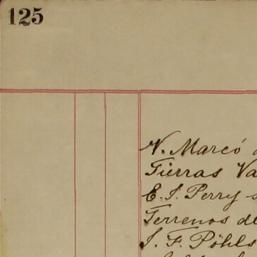 125
N. Marcó
Tierras Va
E. J. Perry
Terrenos de
J. F. Pöhls